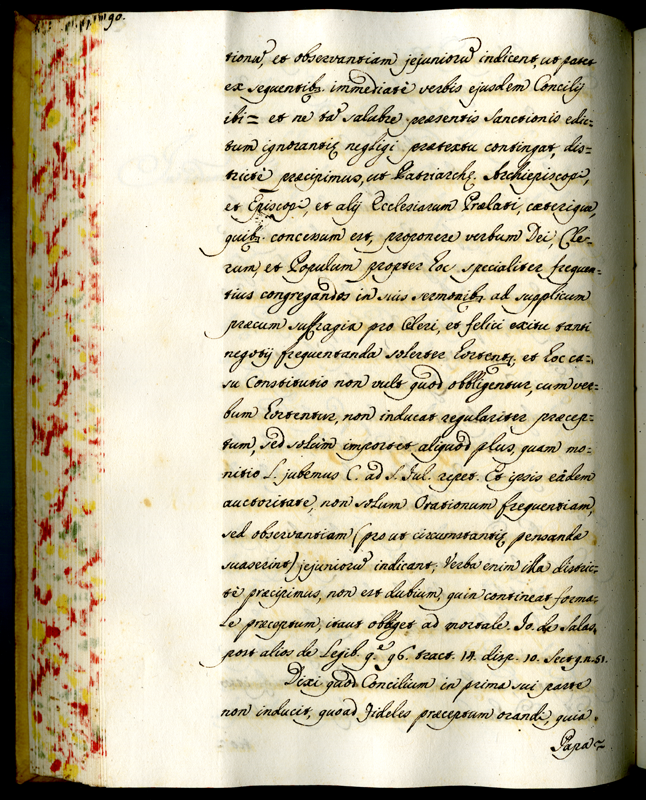 90.
tionū, et observantiam jejuniorū indicent, ut patet
ex sequentibȝ immediatè verbis ejusdem Concilij
ibi = et ne tā salubre præsentis sanctionis edic=
tum ignorantiȩ negligi prætextu contingat, dis=
trictè præcipimus, ut Patriarchȩ, Archiepiscopi,
et Episcopi, et alij Ecclesiarum Prælati, cæteriquæ,
quibȝ concessum est, proponere verbum Dei, Cle=
rum, et Populum propter hoc specialiter frequen=
tius congregandos in suis sermonibȝ ad supplicum
præcum suffragia pro Cleri, et felici exitu tanti
negotij frequentanda solerter hortentȝ, et hoc ca=
su Constitutio non vult quod obbligentur, cum ver=
bum hortentur, non inducat regulariter præcep=
tum, sed solùm importet aliquod plus, quam mo=
nitio L. jubemus C. ad S. Iul. repet. Et ipsis eâdem
auctoritate, non solum Orationum frequentiam,
sed observantiam (prout circumstantiȩ pensanda
suaserint) jejuniorū indicant; Verba enim illa distric=
tè præcipimus, non est dubium, quin contineat forma=
le præceptum, itaut obliget ad mortale. Jo. de Salas,
post alios de Legib. q. 96. tract. 14. disp. 10. Sect. 9. n. 51.
Dixi quod Concilium in prima sui parte
non inducit, quoad fideles præceptum orandi, quia
Papa ~